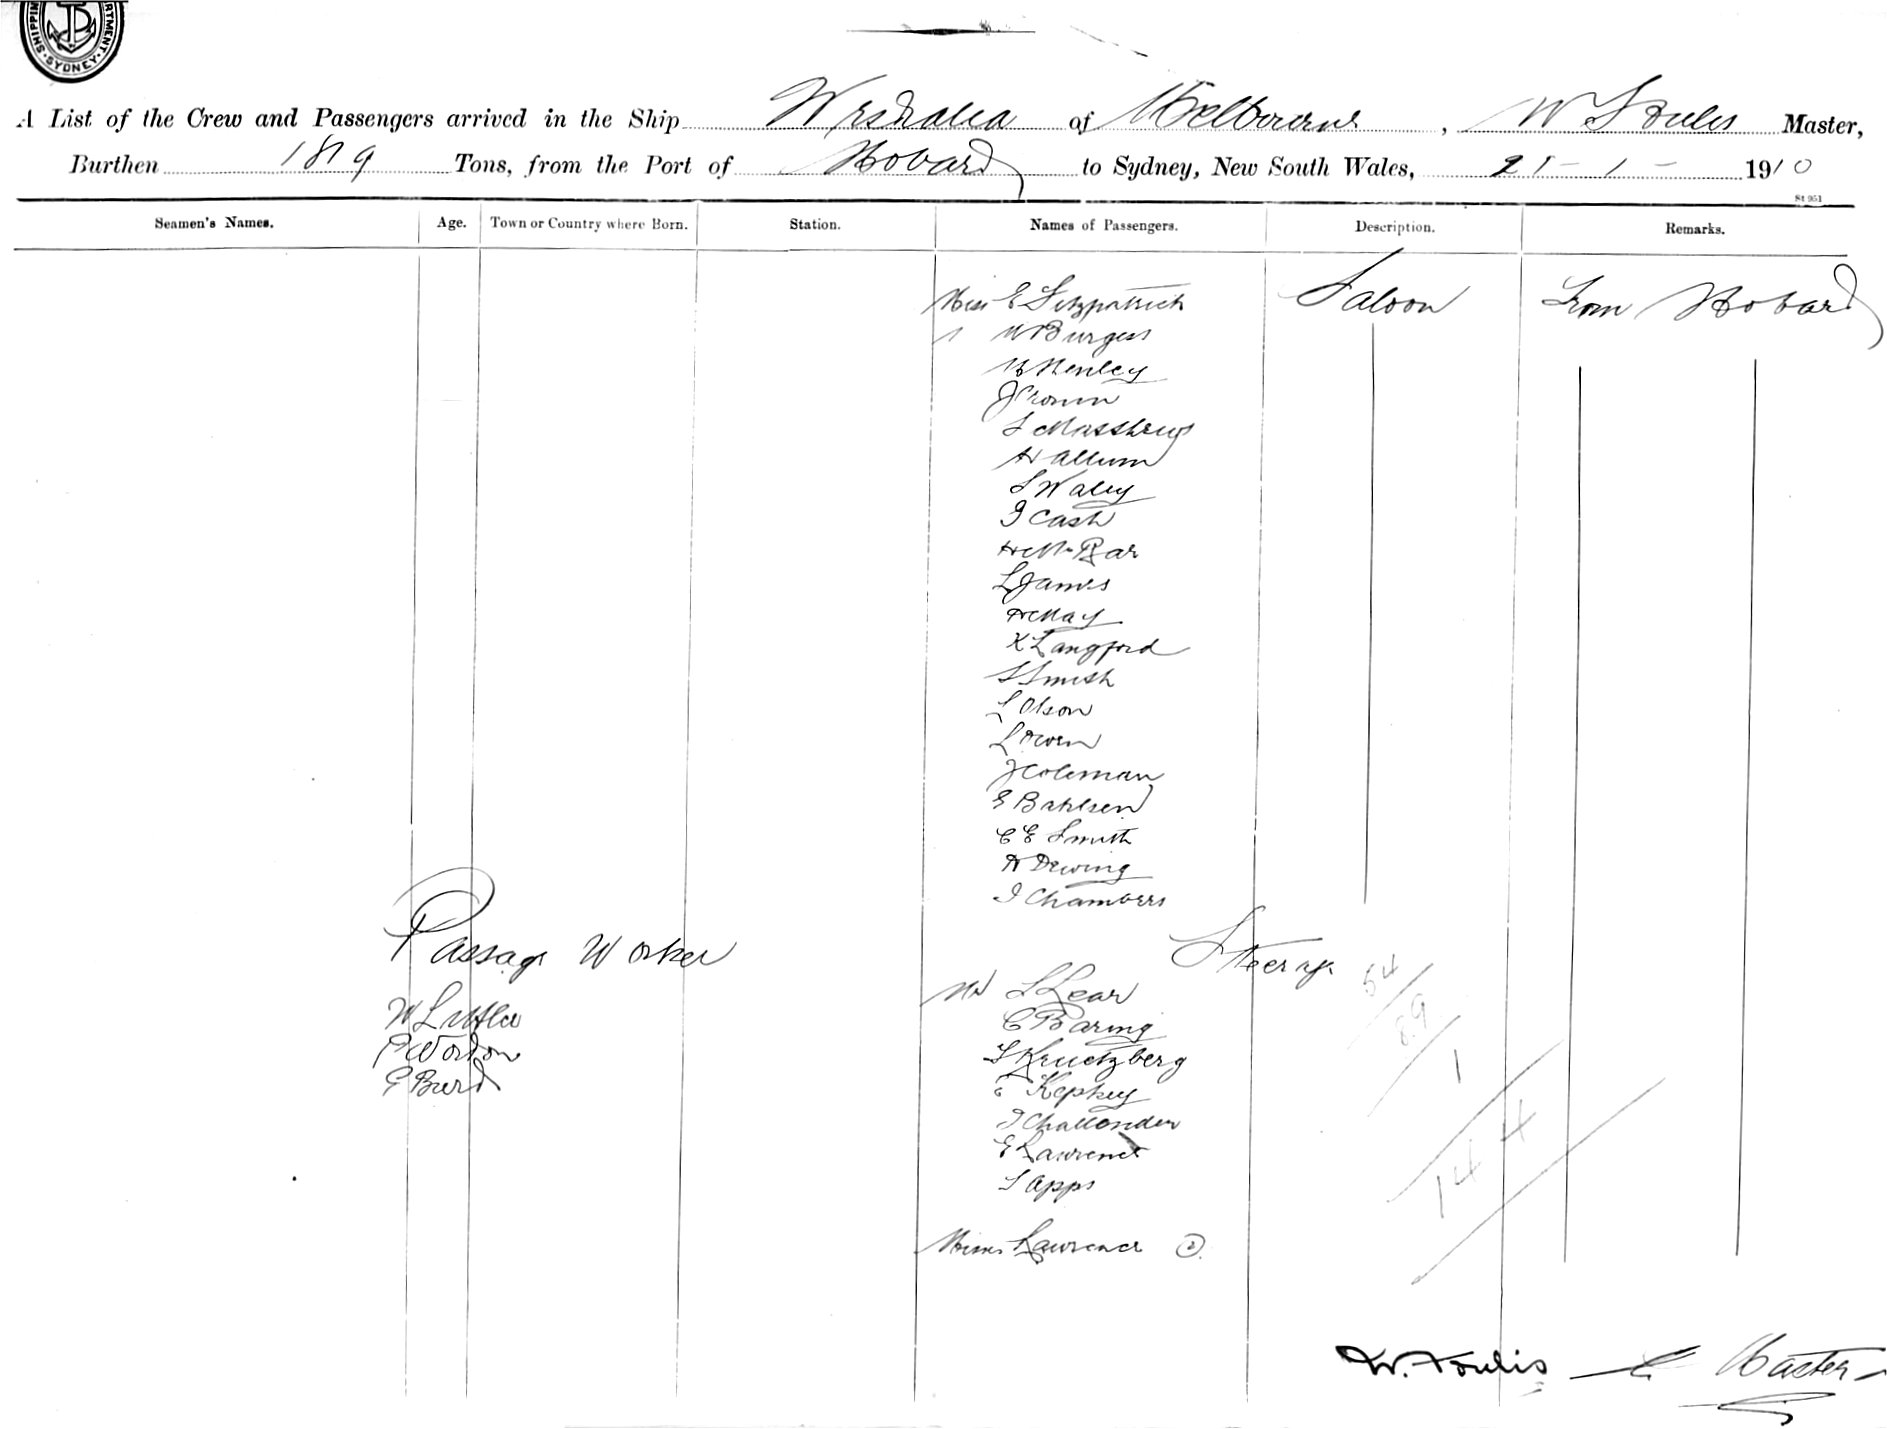 SHIPPING DEPARTMENT SYDNEY
A List of the Crew and Passengers arrived in the Ship Westralia of Melbourne, W Foulis Master,
Burthen 1819 Tons, from the Port of Hobart to Sydney, New South Wales, 21 - 1 - 1910
St 951
Seamen's Names. Age. Town or Country where Born. Station. Names of Passengers. Description. Remarks.
Miss E Fitzpatrick Saloon From Hobart
" W Burgess
H Henley
J Cronin
S Matthews
H Allum
S Waley
I Cash
L James
H May
K Langford
S Smith
L Olson
L Owen
J Coleman
E Bahlsen
C E Smith
H Dewing
I Chambers
Passage Worker Steerage
Mr S Lear
W Little
C Baring
P Worton
S Kruetzberg
E Burd
E Kepkey
I Challender
E Lawrence
S Apps
Misses Lawrence (2)
54
89
1
144
W. Foulis Master